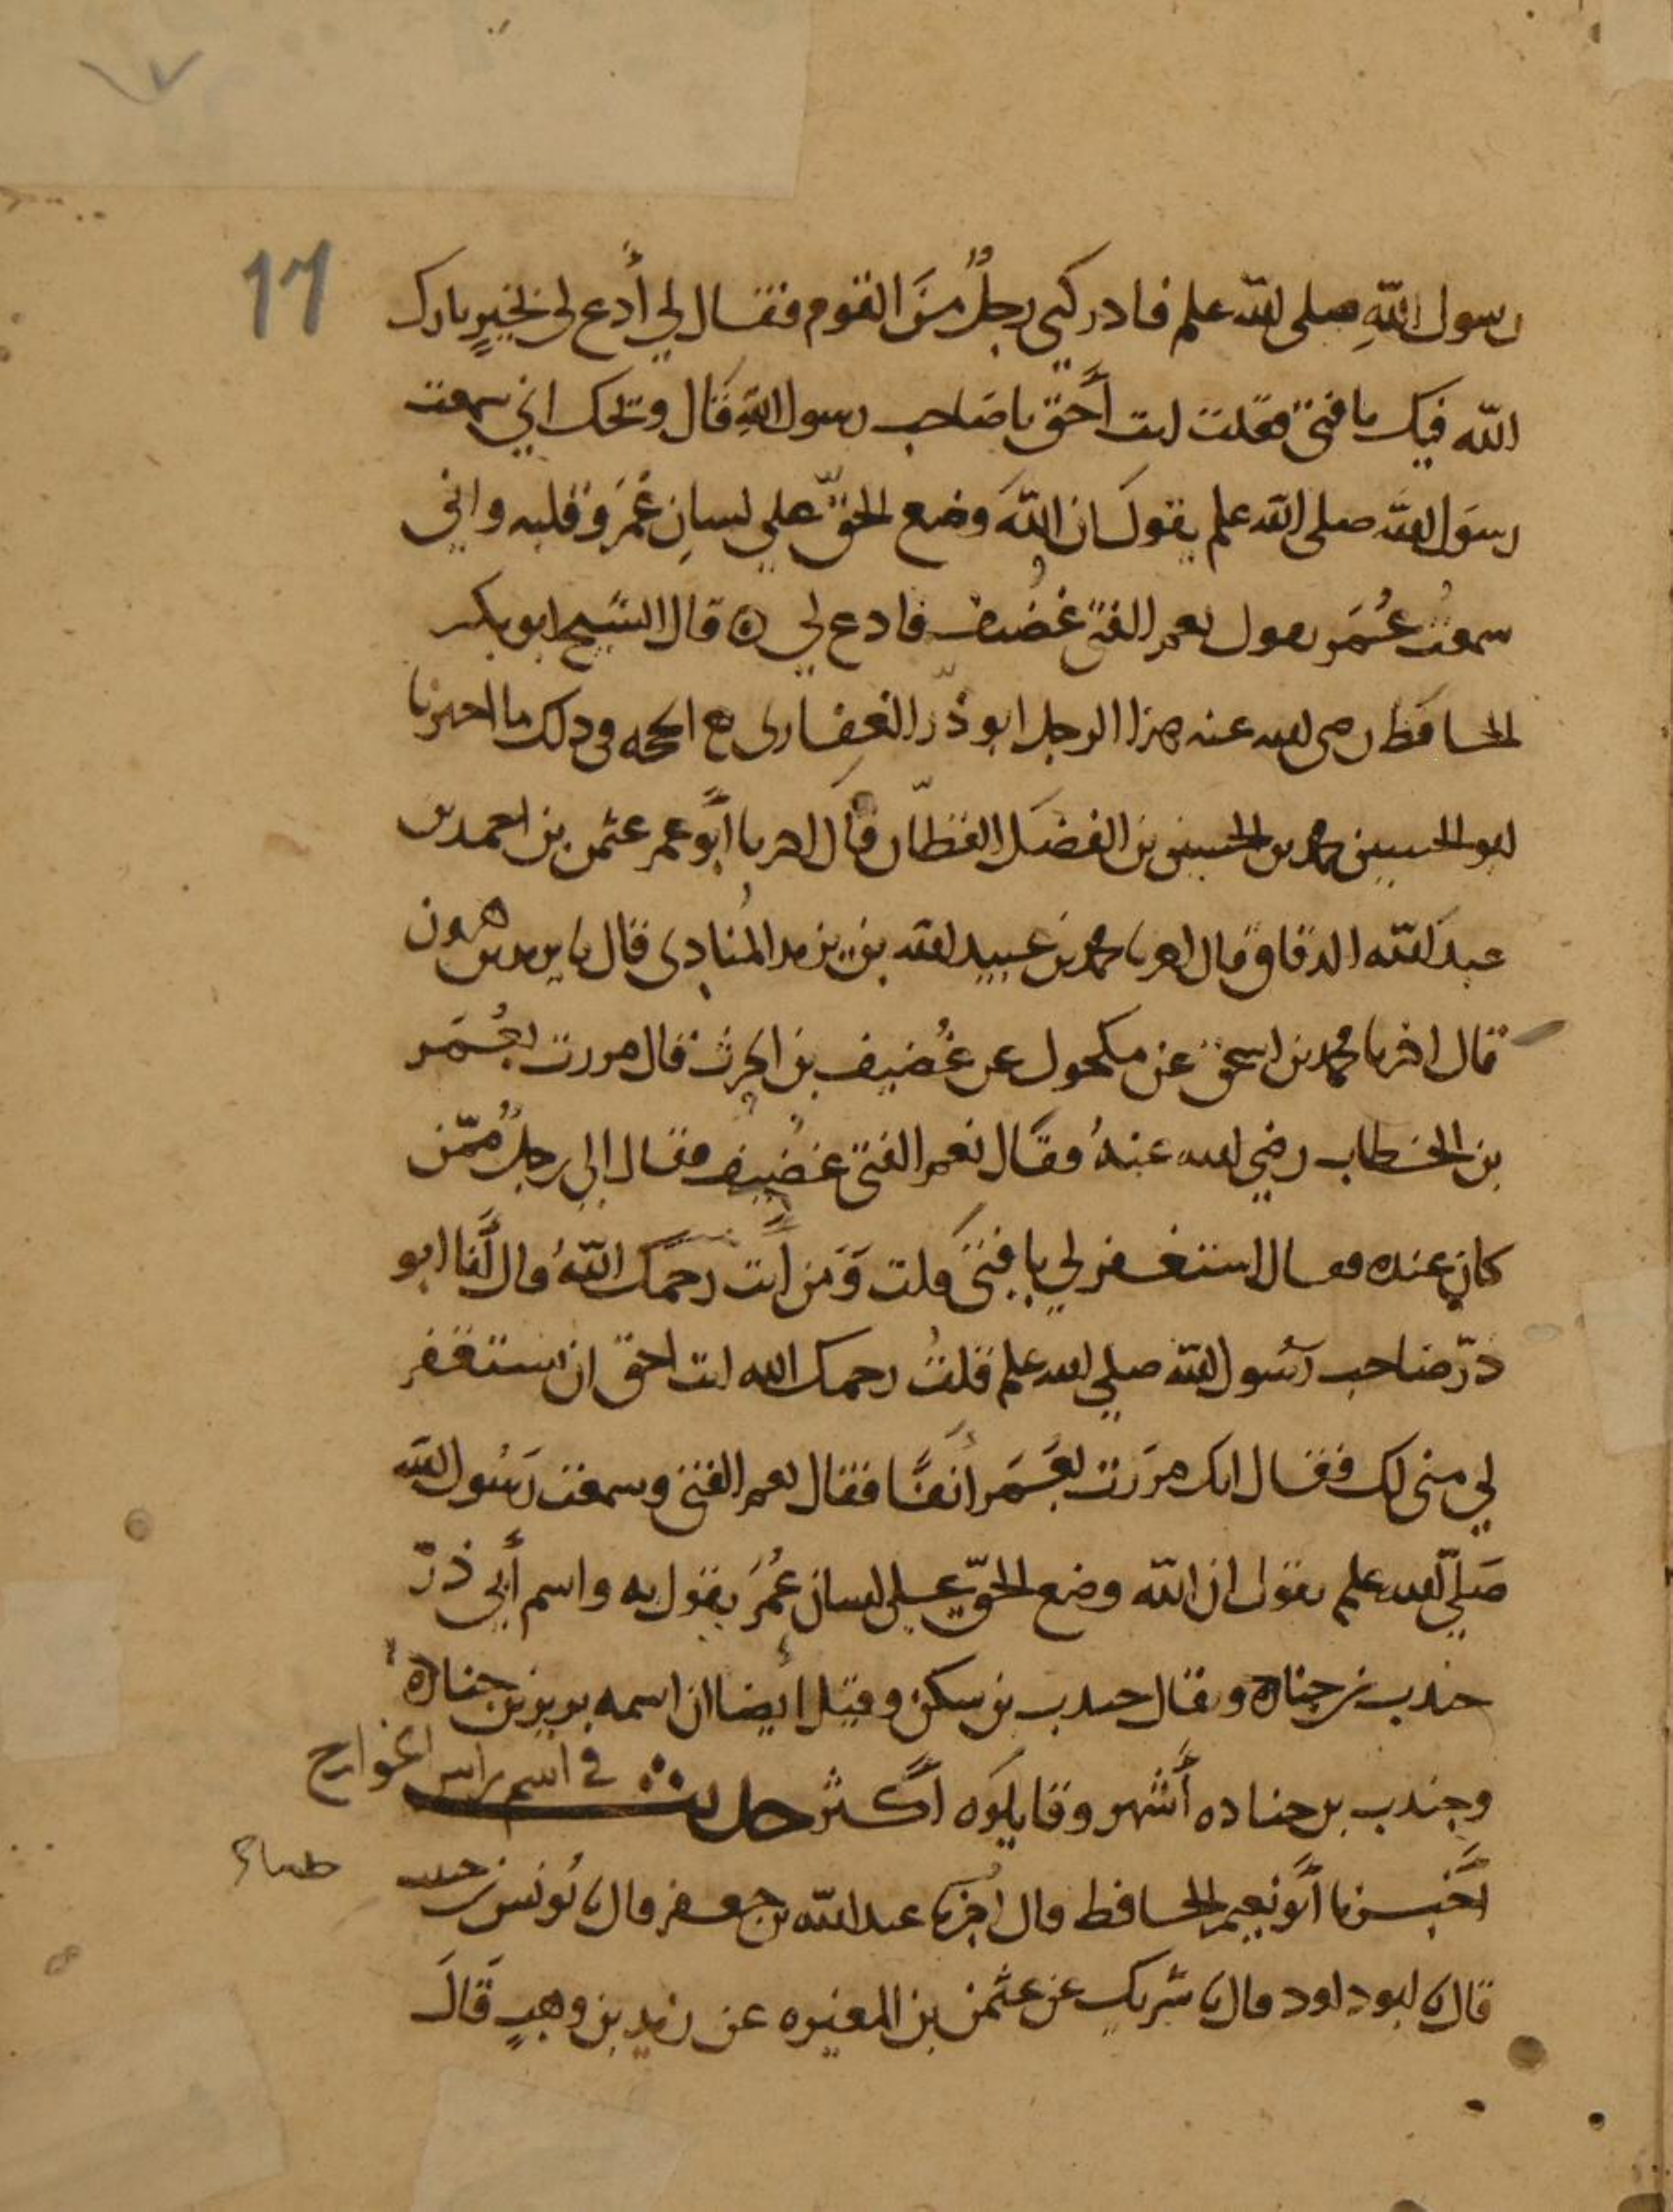 17
رسول اللهِ صلى الله علم فادركني رجلٌ منَ القوم فقال لي أدع لي بخيرٍ بارك
الله فيك يا فتى فقلت انت أحق يا صاحب رسول اللهِ قال ويحك اني سمعت
رسول الله صلى الله علم يقول ان اللهَ وضع الحقّ علي لسانِ عُمَرَ وقلبه واني
سمعتُ عُمَر يقول نعم الفتى غُضيف فادع لي ه قال الشيخ ابو بكر
الحافظ رضي الله عنه هذا الرجل ابو ذرّ الغفاري الحجه في ذلك ما اخبرنا
ابو الحسين محمد بن الحسين بن الفضل القطّان قال اخبرنا أبو عمر عثمن بن احمد بن
عبد الله الدقاق قال اخبرنا محمد بن عبيد الله بن يزيد المُنادي قال نا يزيد بن هرون
قال اخبرنا محمد بن اسحق عن مكحول عن غُضيف بن الحرث قال مررت بعُمَر
بن الخطاب رضي الله عنهُ فقال نعم الفتى غضيف فقال الي رجلٌ ممّن
كان عنده فقال استغفر لي يا فتى قلت وَمَن أنت رحمك اللهُ قال أنا ابو
ذرّ صاحب رسُول الله صلي الله علم قلتُ رحمك الله انت احق ان تستغفر
لي مني لك فقال انك مرَرت بعُمَر أنفًا فقال نعم الفتى وسمعت رسُول الله
صَلي الله علم يقول ان الله وضع الحقّ على لسان عُمَر يقول به واسم أبي ذرّ
جندب بن جناده ويقال جندب بن سكن وقيل أيضا ان اسمه برير بن جناده
وجندب بن جناده أشهر وقايلوه أكثر حديث في اسم راس الخوارج
أخبرنا أبو نعيم الحافظ قال اخبرنا عبد الله بن جعفر قال نا يُونس بن حبيب
قال نا ابو داود قال نا شريك عن عثمن بن المغيره عن زيد بن وهبٍ قالَ